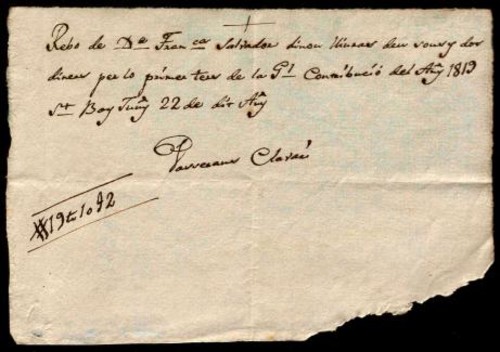 Rebo de Dª Franca Salvador dinou lliuras deu sous y dos
diners per lo primer ters de la Gl Contribució del Añ 1819
St Boy Juñ 22 de dit Añ
Clarà
# 19 ts 10 d 2